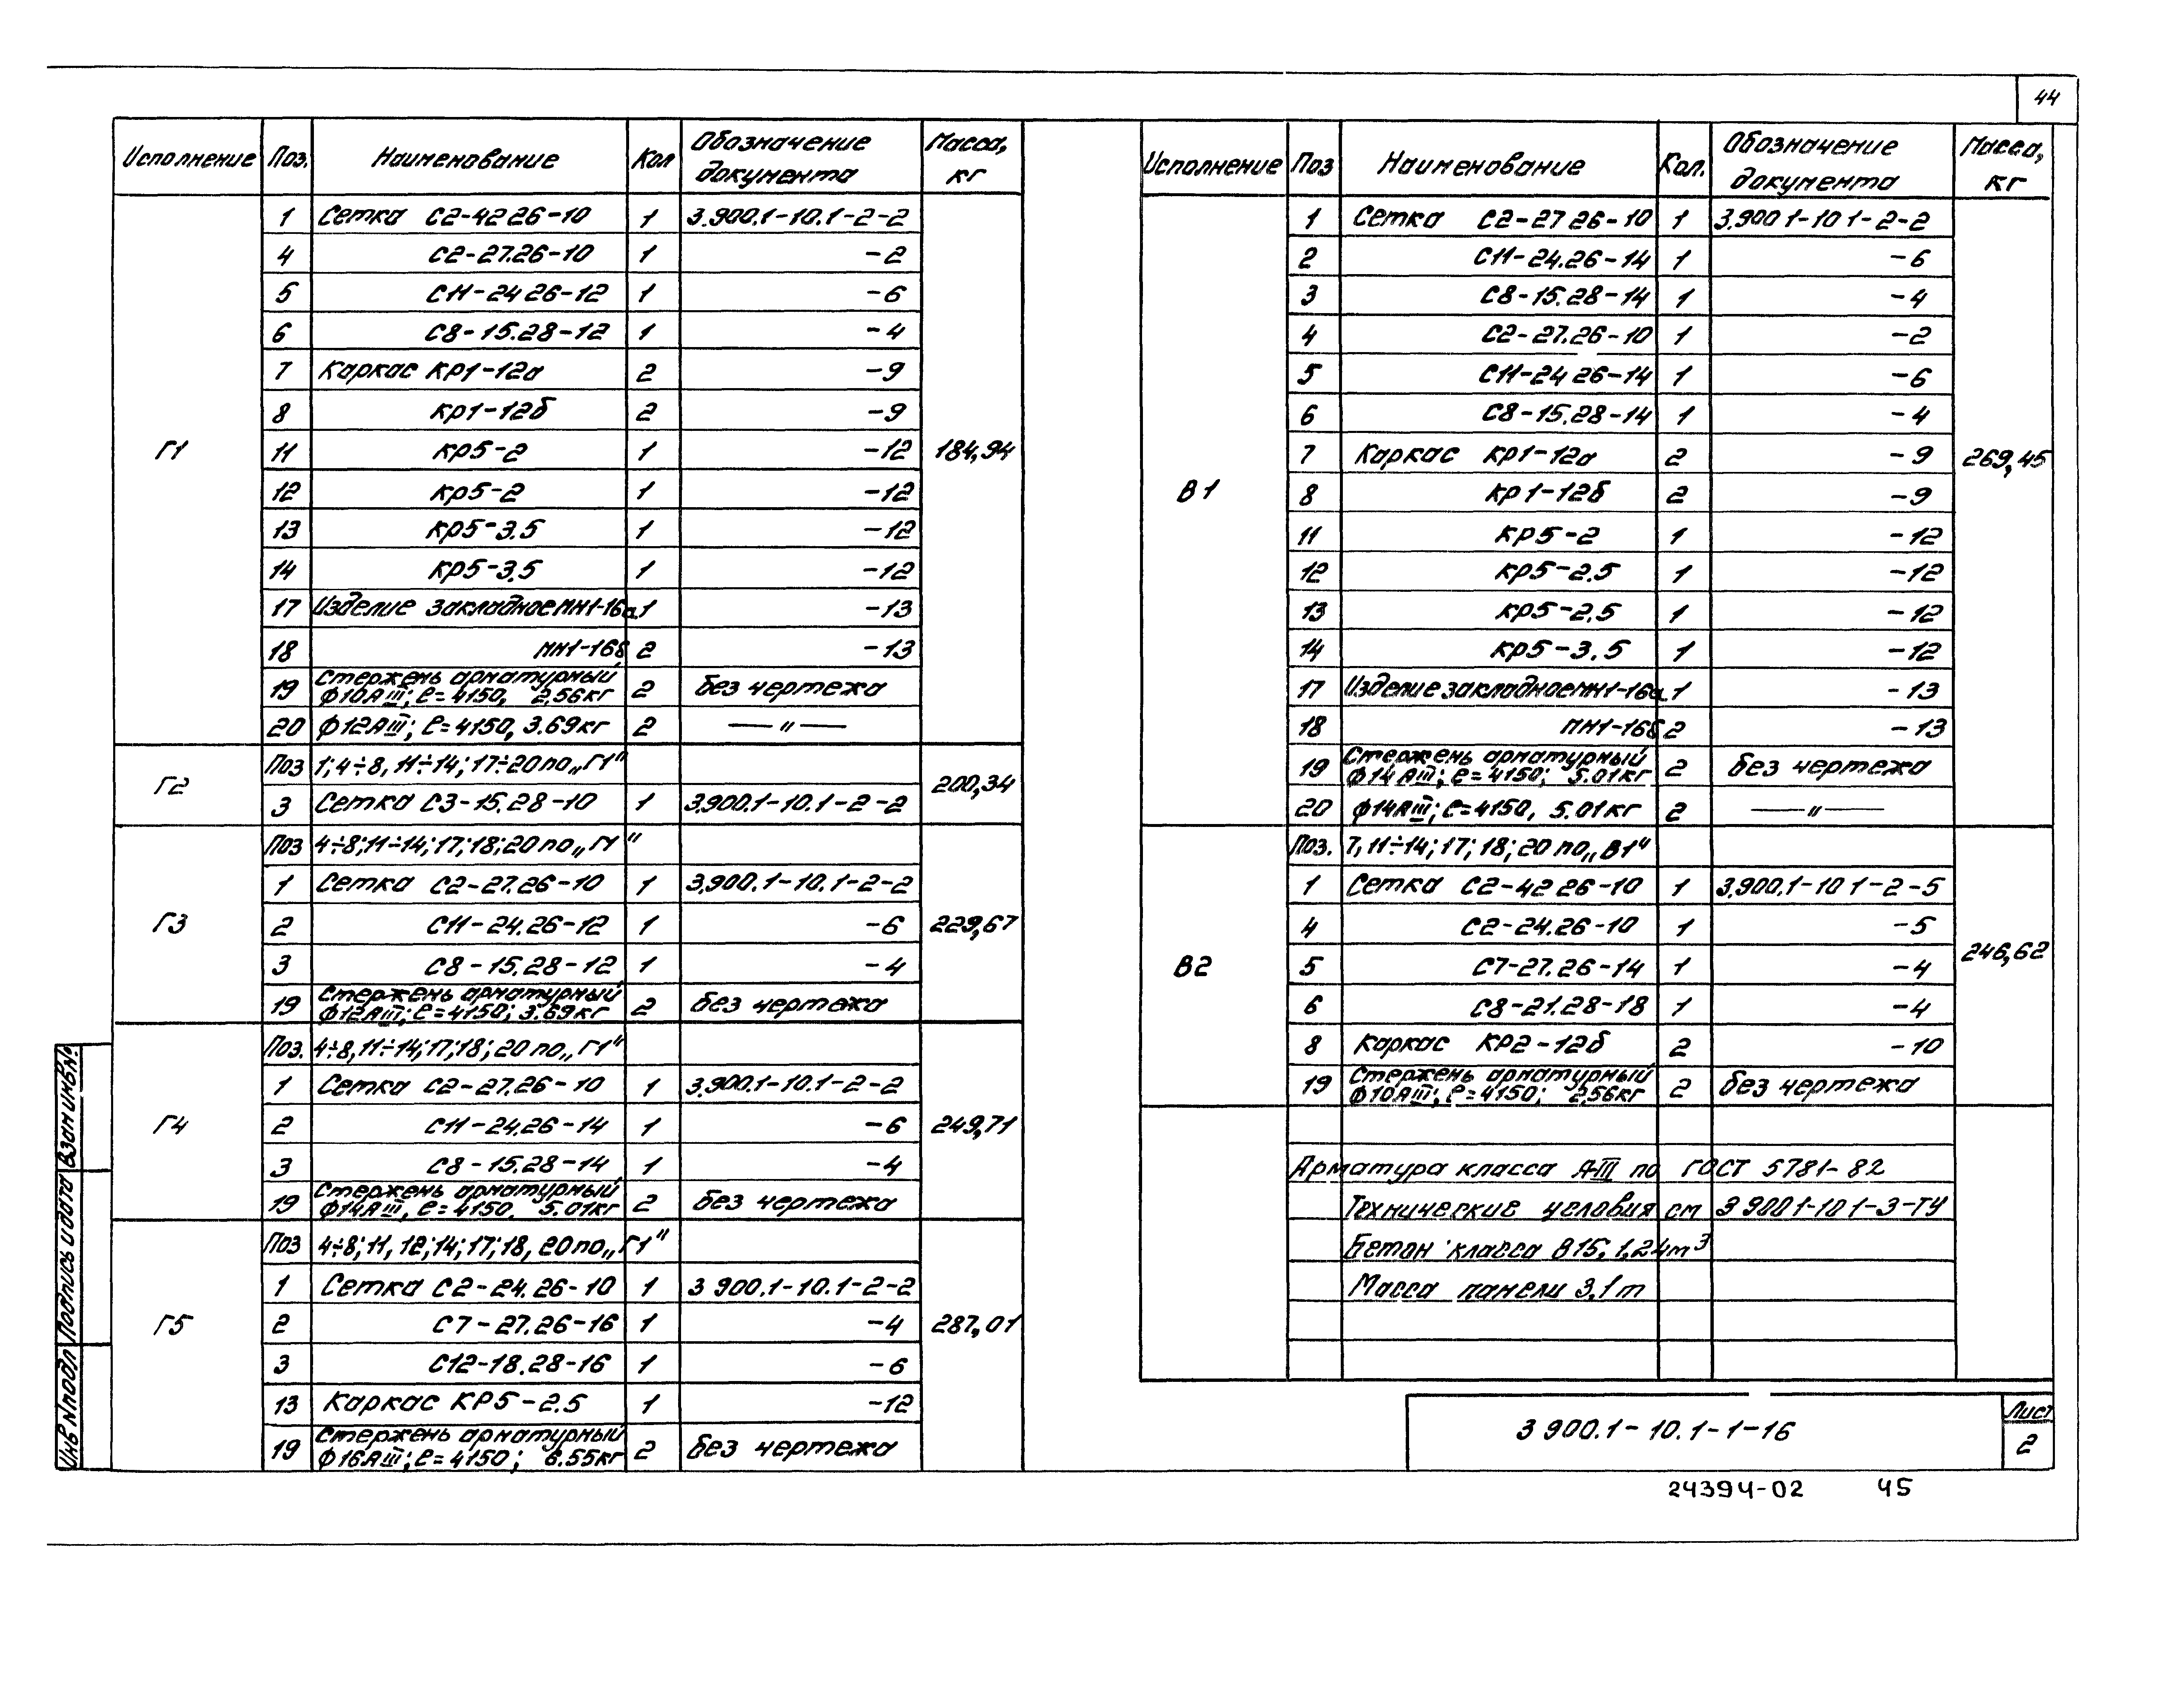 44
Исполнение Поз. Наименование Кол Обозначение документа Масса, кг
Г1 184,94
1 Сетка С2-42 26-10 1 3.900.1-10.1-2-2
4 С2-27.26-10 1 -2
5 С11-24 26-12 1 -6
6 С8-15.28-12 1 -4
7 Каркас КР1-12а 2 -9
8 КР1-12б 2 -9
11 КР5-2 1 -12
12 КР5-2 1 -12
13 КР5-3.5 1 -12
14 КР5-3.5 1 -12
17 Изделие закладное МН1-16а 1 -13
18 МН1-16б 2 -13
19 Стержень арматурный ф10АIII; ℓ=4150, 2,56кг 2 без чертежа
20 ф12АIII; ℓ=4150, 3.69кг 2 —〃—
Г2 200,34
Поз 1; 4÷8, 11÷14; 17÷20 по „Г1"
3 Сетка С3-15.28-10 1 3.900.1-10.1-2-2
Г3 229,67
Поз 4÷8; 11÷14; 17; 18; 20 по „Г1"
1 Сетка С2-27.26-10 1 3.900.1-10.1-2-2
2 С11-24.26-12 1 -6
3 С8-15.28-12 1 -4
19 Стержень арматурный ф12АIII; ℓ=4150; 3.69кг 2 без чертежа
Г4 249,71
Поз. 4÷8, 11÷14; 17; 18; 20 по „Г1"
1 Сетка С2-27.26-10 1 3.900.1-10.1-2-2
2 С11-24.26-14 1 -6
3 С8-15.28-14 1 -4
19 Стержень арматурный ф14АIII, ℓ=4150, 5.01кг 2 без чертежа
Г5 287,01
Поз 4÷8; 11, 12; 14; 17; 18, 20 по „Г1"
1 Сетка С2-24.26-10 1 3 900.1-10.1-2-2
2 С7-27.26-16 1 -4
3 С12-18.28-16 1 -6
13 Каркас КР5-2.5 1 -12
19 Стержень арматурный ф16АIII; ℓ=4150; 6.55кг 2 без чертежа
Исполнение Поз Наименование Кол. Обозначение документа Масса, кг
В1 269,45
1 Сетка С2-27 26-10 1 3.900 1-10 1-2-2
2 С11-24.26-14 1 -6
3 С8-15.28-14 1 -4
4 С2-27.26-10 1 -2
5 С11-24 26-14 1 -6
6 С8-15.28-14 1 -4
7 Каркас КР1-12а 2 -9
8 КР1-12б 2 -9
11 КР5-2 1 -12
12 КР5-2.5 1 -12
13 КР5-2.5 1 -12
14 КР5-3.5 1 -12
17 Изделие закладное МН1-16а 1 -13
18 МН1-16б 2 -13
19 Стержень арматурный ф14 АIII; ℓ=4150; 5.01кг 2 без чертежа
20 ф14АIII; ℓ=4150, 5.01кг 2 —〃—
В2 246,62
Поз. 7, 11÷14; 17; 18; 20 по „В1"
1 Сетка С2-42 26-10 1 3.900.1-10 1-2-5
4 С2-24.26-10 1 -5
5 С7-27.26-14 1 -4
6 С8-21.28-18 1 -4
8 Каркас КР2-12б 2 -10
19 Стержень арматурный ф10АIII; ℓ=4150; 2,56кг 2 без чертежа
Арматура класса А-III по ГОСТ 5781-82
Технические условия см 3 900 1-10 1-3-ТУ
Бетон класса В15; 1,24м³
Масса панели 3,1т
3 900.1-10.1-1-16
Лист
2
24394-02 45
Инв.№подл Подпись и дата Взам инв.№